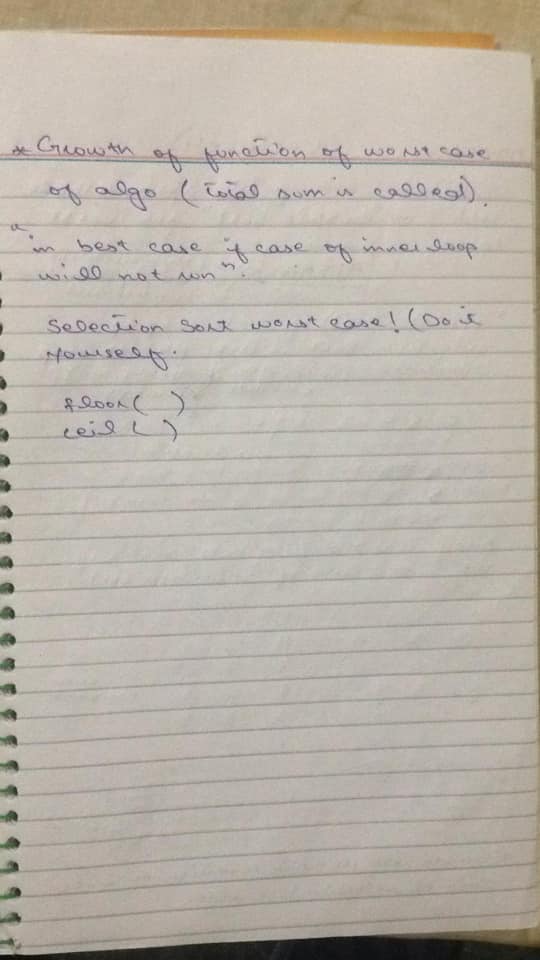 * Growth of function of worst case
of algo (Total sum is called).
"in best case if case of inner loop
will not run".
Selection Sort worst case! (Do it
yourself.
floor( )
ceil( )